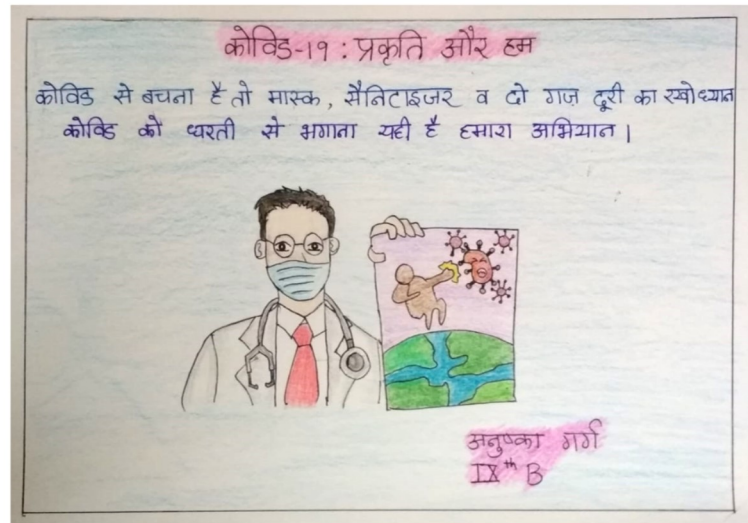 कोविड-19 : प्रकृति और हम
कोविड से बचना है तो मास्क, सैनिटाइजर व दो गज़ दूरी का रखो ध्यान
कोविड को धरती से भगाना यही है हमारा अभियान।
अनुष्का गर्ग
IXth B